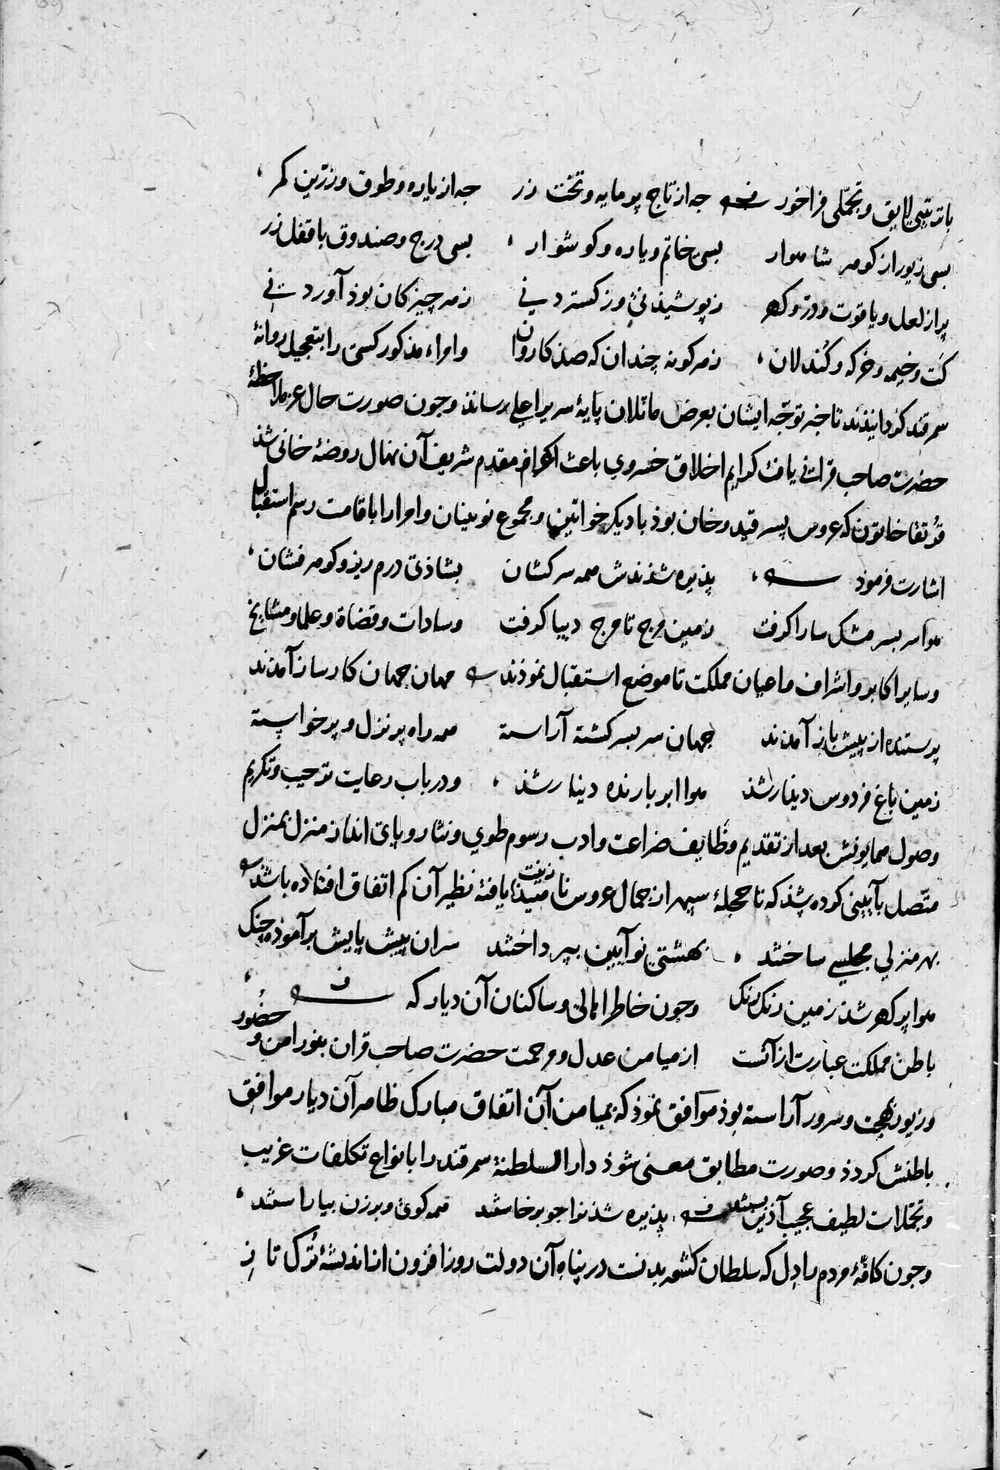 باترتیبی لایق و تجملی فراخور چه از تاج پرمایه و تخت زر چه از یاره و طوق و زرین کمر
بسی زیور از کوهر شاهوار بسی خاتم و یاره و کوشوار بسی درج و صندوق با قفل زر
پر از لعل و یاقوت و در و کهر ز پوشیدنی و ز کستردنی ز هر چیز کان بود آوردنی
کت و خیمه و خرکه و کندلان ز هر کونه چندان که صد کاروان و امراء مذکور کس را بتعجیل روانهٔ
سمرقند کردانیدند تا خبر توجه ایشان بعرض مائلان پایهٔ سریر اعلی رساند و چون صورت حال عز ملاحظهٔ
حضرت صاحب قرانی یافت کرایم اخلاق خسروی باعث اکرام مقدم شریف آن نهال روضهٔ خانی شد
قوتقا خاتون که عروس پسر قیدو خان بود با دیکر خواتین و مجموع نوینان و امرا را باقامت رسم استقبال
اشارت فرمود پذیره شدندش همه سرکشان بشادی درم ریز و کوهر فشان
هوا سر بسر مشک سارا کرفت زمین مرج تا مرج دیبا کرفت و سادات و قضاة و علما و مشایخ
و سایر اکابر و اشراف و اعیان مملکت تا موضع استقبال نمودند مهان جهان کارساز آمدند
پرستنده از پیش باز آمدند جهان سر بسر کشته آراسته همه راه پر نزل و پر خواسته
زمین باغ فردوس دیدار شد هوا ابر بارنده دینار شد و در باب رعایت ترحیب و تکریم
وصول همایونش بعد از تقدیم وظایف ضراعت و ادب رسوم طوی و نثار و پای انداز منزل بمنزل
متصل بآیینی کرده شد که تا حجلهٔ سپهر از جمال عروس ناهید زینت یافته نظیر آن کم اتفاق افتاده باشد
بهر منزلی مجلسی ساختند بهشتی نو آیین بپرداختند سران پیش پایش برآموده چنک
هوا پر کهر شد زمین رنک رنک و چون خاطر اهالی و ساکنان آن دیار که
باطن مملکت عبارت از آنست از میامن عدل و مرحمت حضرت صاحب قران بنور امن و حضور
و زیور بهجت و سرور آراسته بود موافق نمود که بمیامن آن اتفاق مبارک ظاهر آن دیار موافق
باطنش کردد و صورت مطابق معنی شود دار السلطنهٔ سمرقند را بانواع تکلفات غریب
و تجملات لطیف عجیب آذین بستند پذیره شدن را چو برخاستند همه کوی و برزن بیاراستند
و چون کافهٔ مردم را دل که سلطان کشور بدنست در پناه آن دولت روز افزون از اندیشهٔ ترک تاز